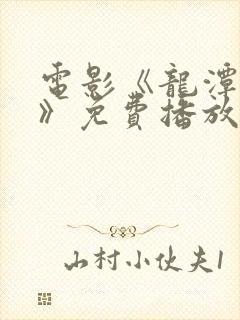 電影《龍潭
》免費播放
山村小伙夫1